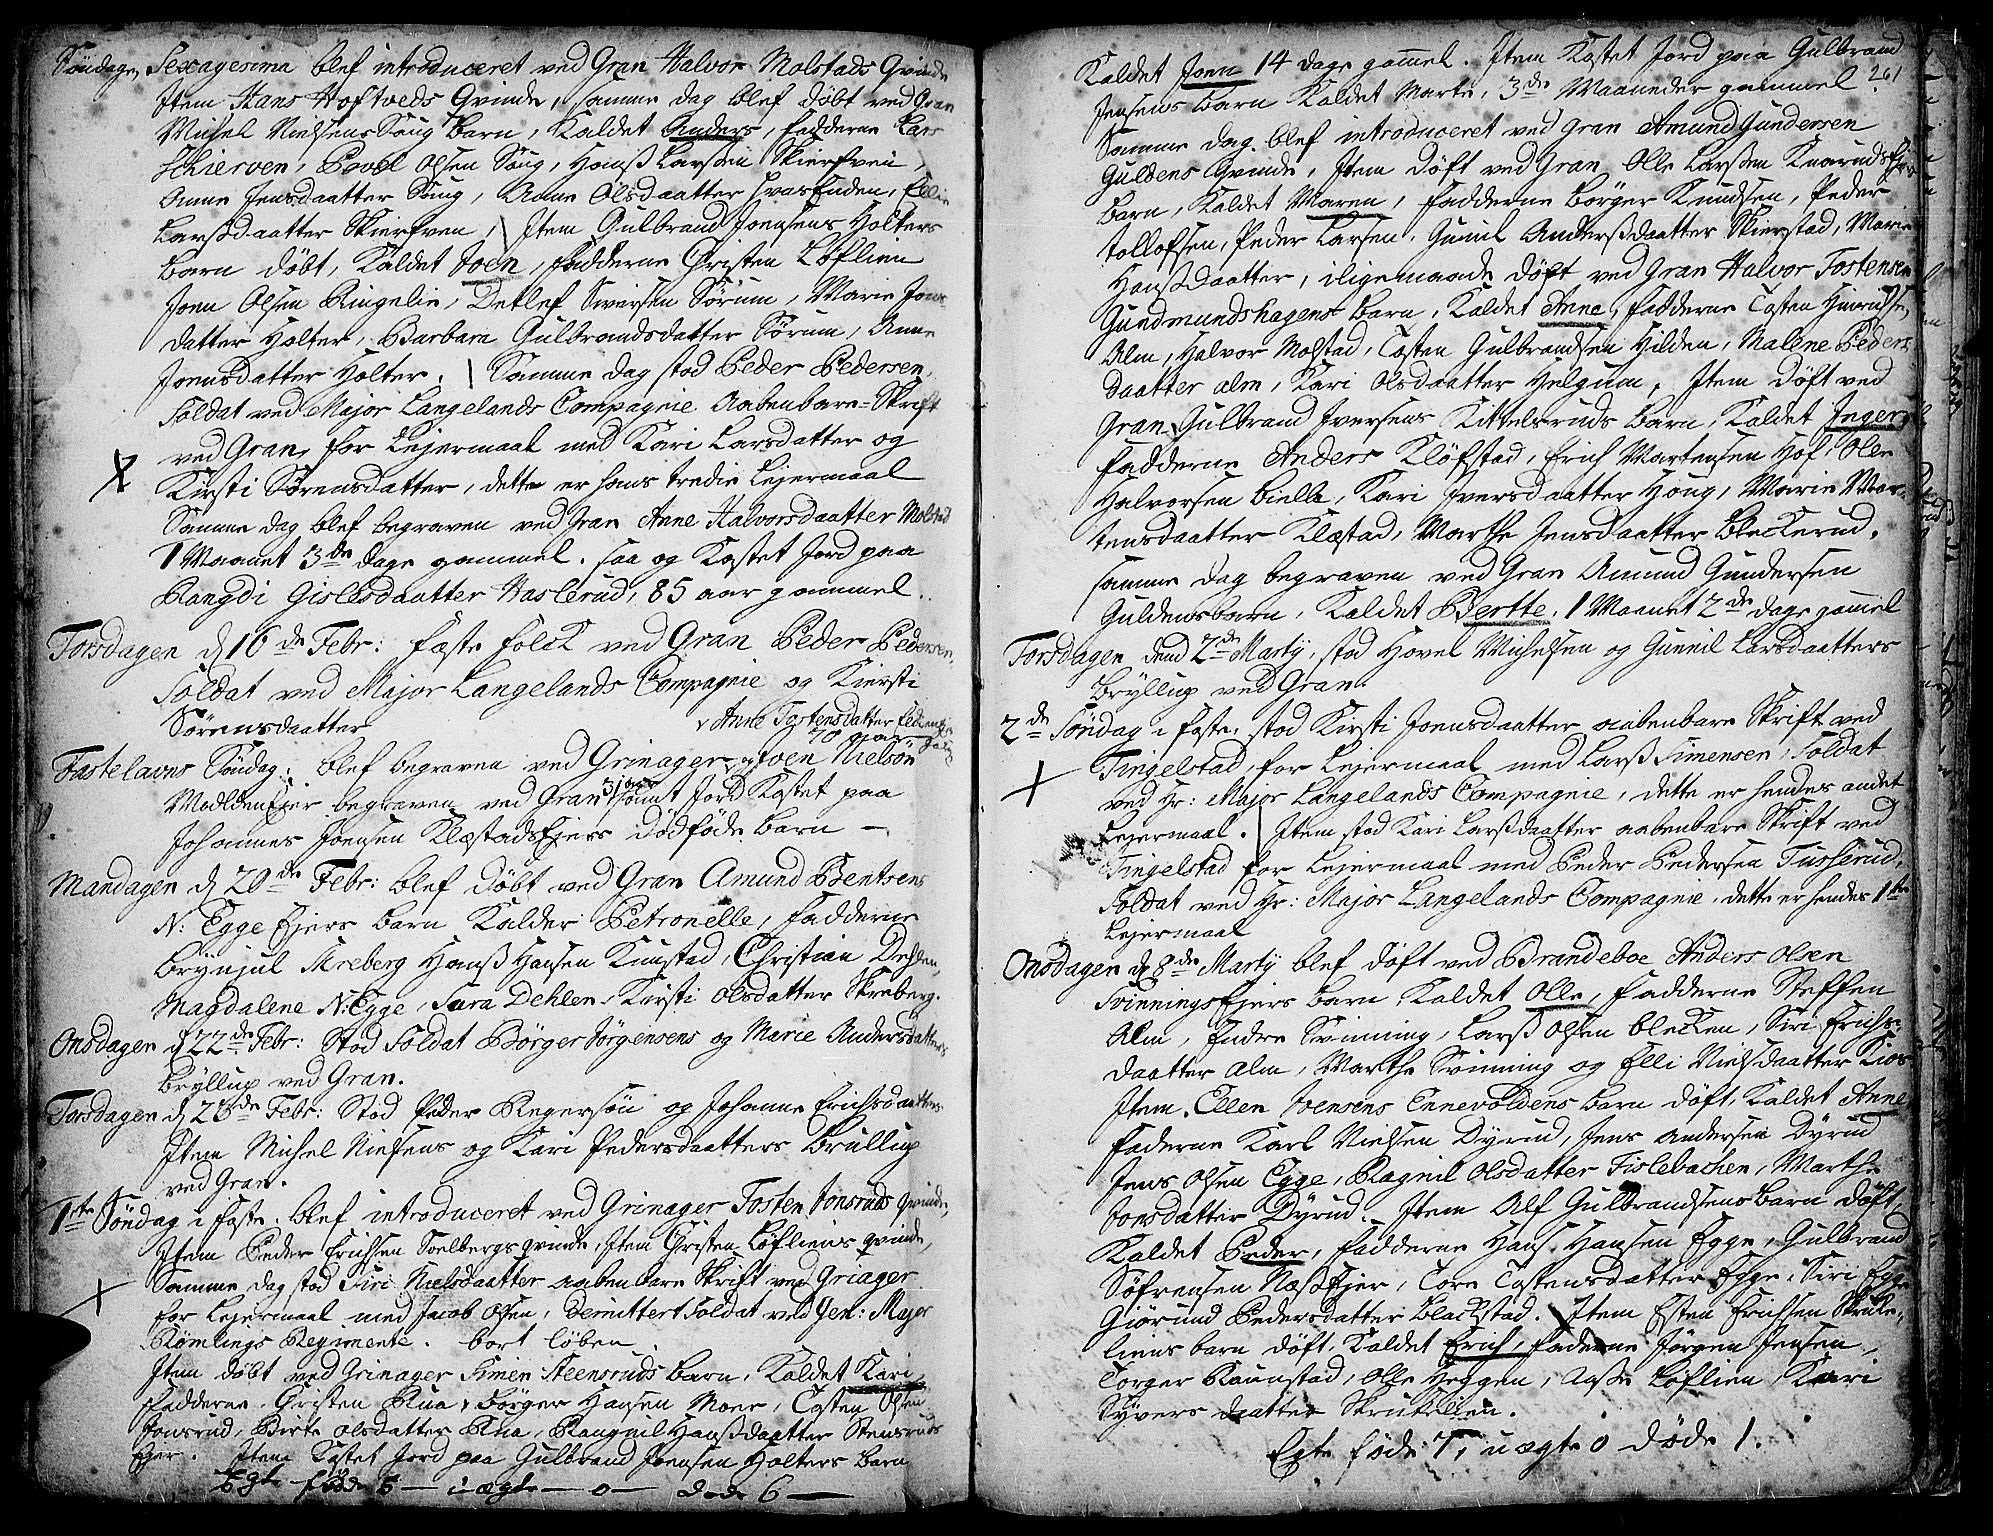 Söndagen Sexagesima blef introduceret ved Gran Halvor Molstads Qvinde
Item Hans Hoftveds Qvinde, samme dag blef döbt ved Gran
Michel Nielsens Soug barn, Kaldet Anders, fadderne Lars
Schierven, Povel Olsen Soug, Hanß Larsen Skierfven,
Anne Jensdaatter Soug, Anne Olsdaatter Hvasenden, Elli
Larsdaatter Skierfven, Item Gulbrand Joensens Holters
barn döbt, Kaldet Joen, fadderne Christen Löflien
Joen Olsen Ringelie, Detlef Siversen Sörum, Marie Jons
datter Holter, Barbara Gulbrandsdatter Sörum, Anne
Joensdatter Holter. Samme dag stod Peder Pedersen,
Soldat ved Major Langelands Compagnie Aabenbare-Skrift
ved Gran, for Lejermaal med Kari Larsdatter og
Kirsti Sörensdatter, dette er hans tredie Lejermaal
Samme dag blef begraven ved Gran Anne Halvorsdaatter Molstad
1 Maanet 3de dage gammel. saa og Kastet Jord paa
Rangdi Gislesdaatter Haslerud, 85 aar gammel.
Torsdagen d 16de Febr: fæste folck ved Gran Peder Pedersen
Soldat ved Major Langelands Compagnie og Kiersti
Sörensdaatter
Anne Tostensdatter
70 aar
Fastelavns Söndag: blef begraven ved Grinager Joen Nielsön
Modldeneier begraven ved Gran 31 aar samt Jord Kastet paa
Johannes Joensen Klæstadsejers dödföde barn –
Mandagen d 20de Febr: blef döbt ved Gran Amund Bentsens
N: Egge Ejers barn Kaldet Petronelle, fadderne
Brynjul Skreberg Hanß Hansen Kinstad, Christian Dehlen,
Magdalene N: Egge, Sara Dehlen, Kirsti Olsdatter Skreberg.
Onsdagen d 22de Febr: Stod Soldat Börger Jörgensens og Marie Andersdatters
Bryllup ved Gran.
Torsdagen d 23de Febr: Stod Peder Regersön og Johanne Erichsdaatters
Item Michel Nielsens og Kari Pedersdaatters Brullup
ved Gran.
1ste Söndag i faste, blef introduceret ved Grinager Tosten Jonsruds qvinde,
Item Peder Erichsen Soelbergs qvinde, Item Christen Löfliens qvinde,
Samme dag stod Siri Nielsdaatter aabenbare Skrift ved Griager
for Lejermaal med Jacob Olsen, Demittert Soldat ved Gen: Major
Römlings Regimente. bort löben
Item döbt ved Grinager Simen Steensruds barn, Kaldet Kari,
fadderne Christen Rua, Börger Hansen Moer, Tosten Olsen
Jonsrud, Birte Olsdatter Rua, Rangnil Hanßdaatter Stensruds
Ejer. Item Kastet Jord paa Gulbrand Joensen Holters barn
Egte föde 5 – uægte – 0 – döde 6 –
261
Kaldet Joen 14 dage gammel. Item Kastet Jord paa Gulbrand
Jensens barn Kaldet Marte, 3de Maaneder gammel.
Samme dag blef introduceret ved Gran Amund Gundersen
Guldens Qvinde, Item döft ved Gran Olle Larsen
barn, Kaldet Maren, fadderne Börger Knudsen, Peder
Tollofsen, Peder Larsen, Gunil Andersdaatter Skierstad, Marie
Hansdaatter, iligemaade döft ved Gran Halvor Tostensen
Gundmundshagens barn, Kaldet Anne, fadderne Tosten Hinrichsen
Alm, Halvor Molstad, Tosten Gulbrandsen Hilden, Malene Peders
daatter Alm, Kari Olsdaatter Helgum, Item döft ved
Gran Gulbrand Iversens Kittelsruds barn, Kaldet Inger
fadderne Anders Klöfstad, Erich Martensen Hof, Olle
Halvorsen Bielle, Kari Iversdaatter Houg, Marie Mor-
tensdaatter Klæstad, Marthe Jensdaatter Bleckerud.
samme dag begraven ved Gran Amund Gundersen
Guldensbarn, Kaldet Berthe, 1 Maanet 2de dage gammel
Torsdagen dend 2de Martÿ, stod Hovel Michelsen og Gunnil Larsdaatters
Bryllup ved Gran.
2de Söndag i faste, stod Kirsti Joensdaatter aabenbare Skrift ved
Tingelstad, for Lejermaal med Larß Simensen, Soldat
ved Hr: Major Langelands Compagnie, dette er hendes andet
Lejermaal. Item stod Kari Larsdaatter aabenbare Skrift ved
Tingelstad for Lejermaal med Peder Pedersen Tusserud,
Soldat ved Hr: Major Langelands Compagnie, dette er hendes 1te
Lejermaal
Onsdagen d 8de Martÿ blef döft ved Brandeboe Anders Olsen
SvinningsEjers barn Kaldet Olle, fadderne Steffen
Alm, Endre Svinning, Larß Olsen Blecken, Siri Erichs-
daatter Alm, Marthe Svinning og Elli Nielsdaatter Kios
Item Ellen Joensens Ennevoldens barn döft, Kaldet Anne
faderne Karl Nielsen Dyrud, Jens Andersen Dyrud
Jens Olsen Egge, Ragnil Olsdatter Fislebachen, Marthe
Jonsdatter Dyrud. Item Alf Gulbrandsens barn döft,
Kaldet Peder, fadderne Hans Hansen Egge, Gulbrand
Söfrensen Næss Ejer, Tore Tostensdatter Egge, Siri Egge
Giörund Pedersdatter Blackstad. Item Esten Erichsen Skrute-
liens barn döft, Kaldet Erich, faderne Jörgen Jensen,
Torger Raunstad, Olle Heggen, Aase Löflien, Kari
Syvers daatter Skrutelien.
Egte föde 7, uægte 0 döde 1.